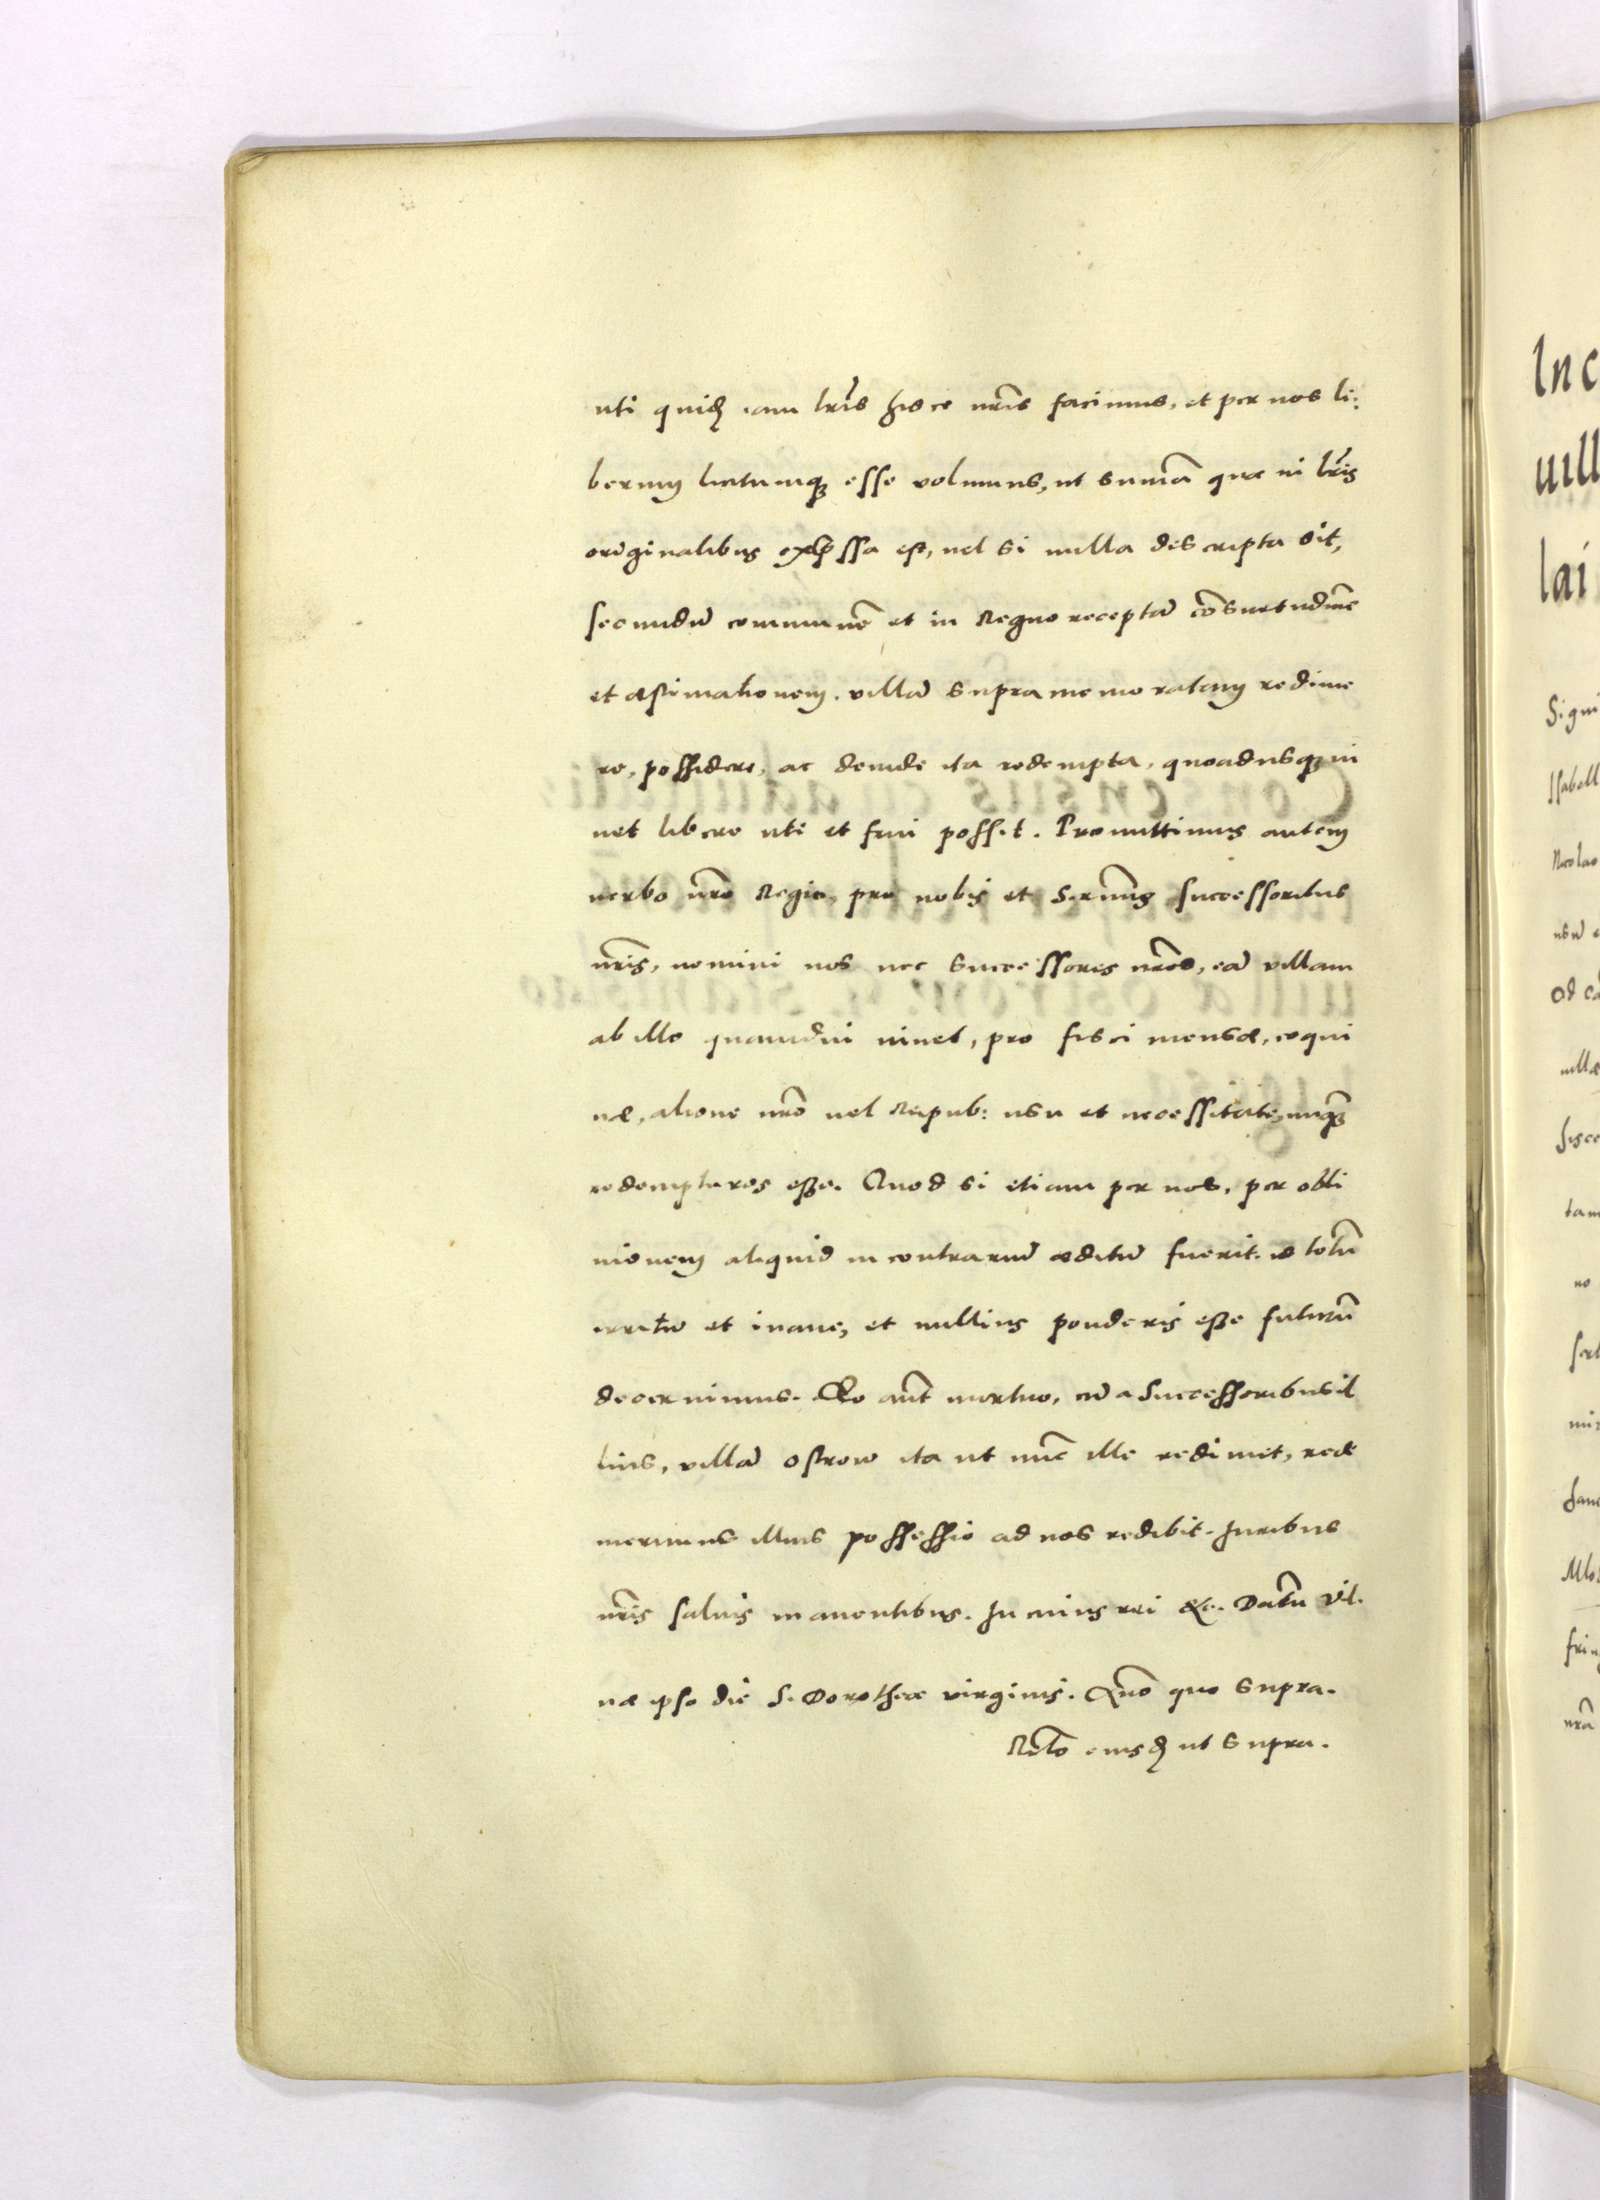 uti quidẽ iam lr̃is hisce nr̃is facimus, et per nos li:
berum licitumq3 esse volumus, ut sum̃a quæ in lr̃is
originalibus exp̃ssa est, uel si nulla descripta sit,
secundũ communẽ et in Regno receptã cõsuetudinẽ
et æstimationem. villã supramemoratam redime
re, possidere, ac deinde ita redempta, quoadusq3 ui
uet libere uti et frui possit. Promittimus autem
uerbo nr̃o Regio, pro nobis et Ser.mis successoribus
nr̃is, nemini nos nec successores nr̃os, eã villam
ab illo quamdiu uiuet, pro fisci mensæ, coqui
næ, alione nr̃o uel Reipub: usu et necessitate, unq̃3
redempturos esse. Quod si etiam per nos, per obli
uionem aliquid in contrariũ æditũ fuerit. id totũ
irritũ et inane, et nullius ponderis esse futurũ
decernimus. Eo aũt mortuo, cũ a successoribus il
lius, villã Ostrow ita ut nũc ille redimet, rede
merimus illius possessio ad nos redibit. Iuribus
nr̃is saluis manentibus. In cuius rei &c. Datũ Vil.
næ ipso die S. Dorotheæ virginis. Anõ quo supra.
Rel̃o eiusdẽ ut supra.
Inc
uill
lai
Signi
Isabell
Nicolao
usũ
uillæ
hisce
tam
no
mis
nr̃a